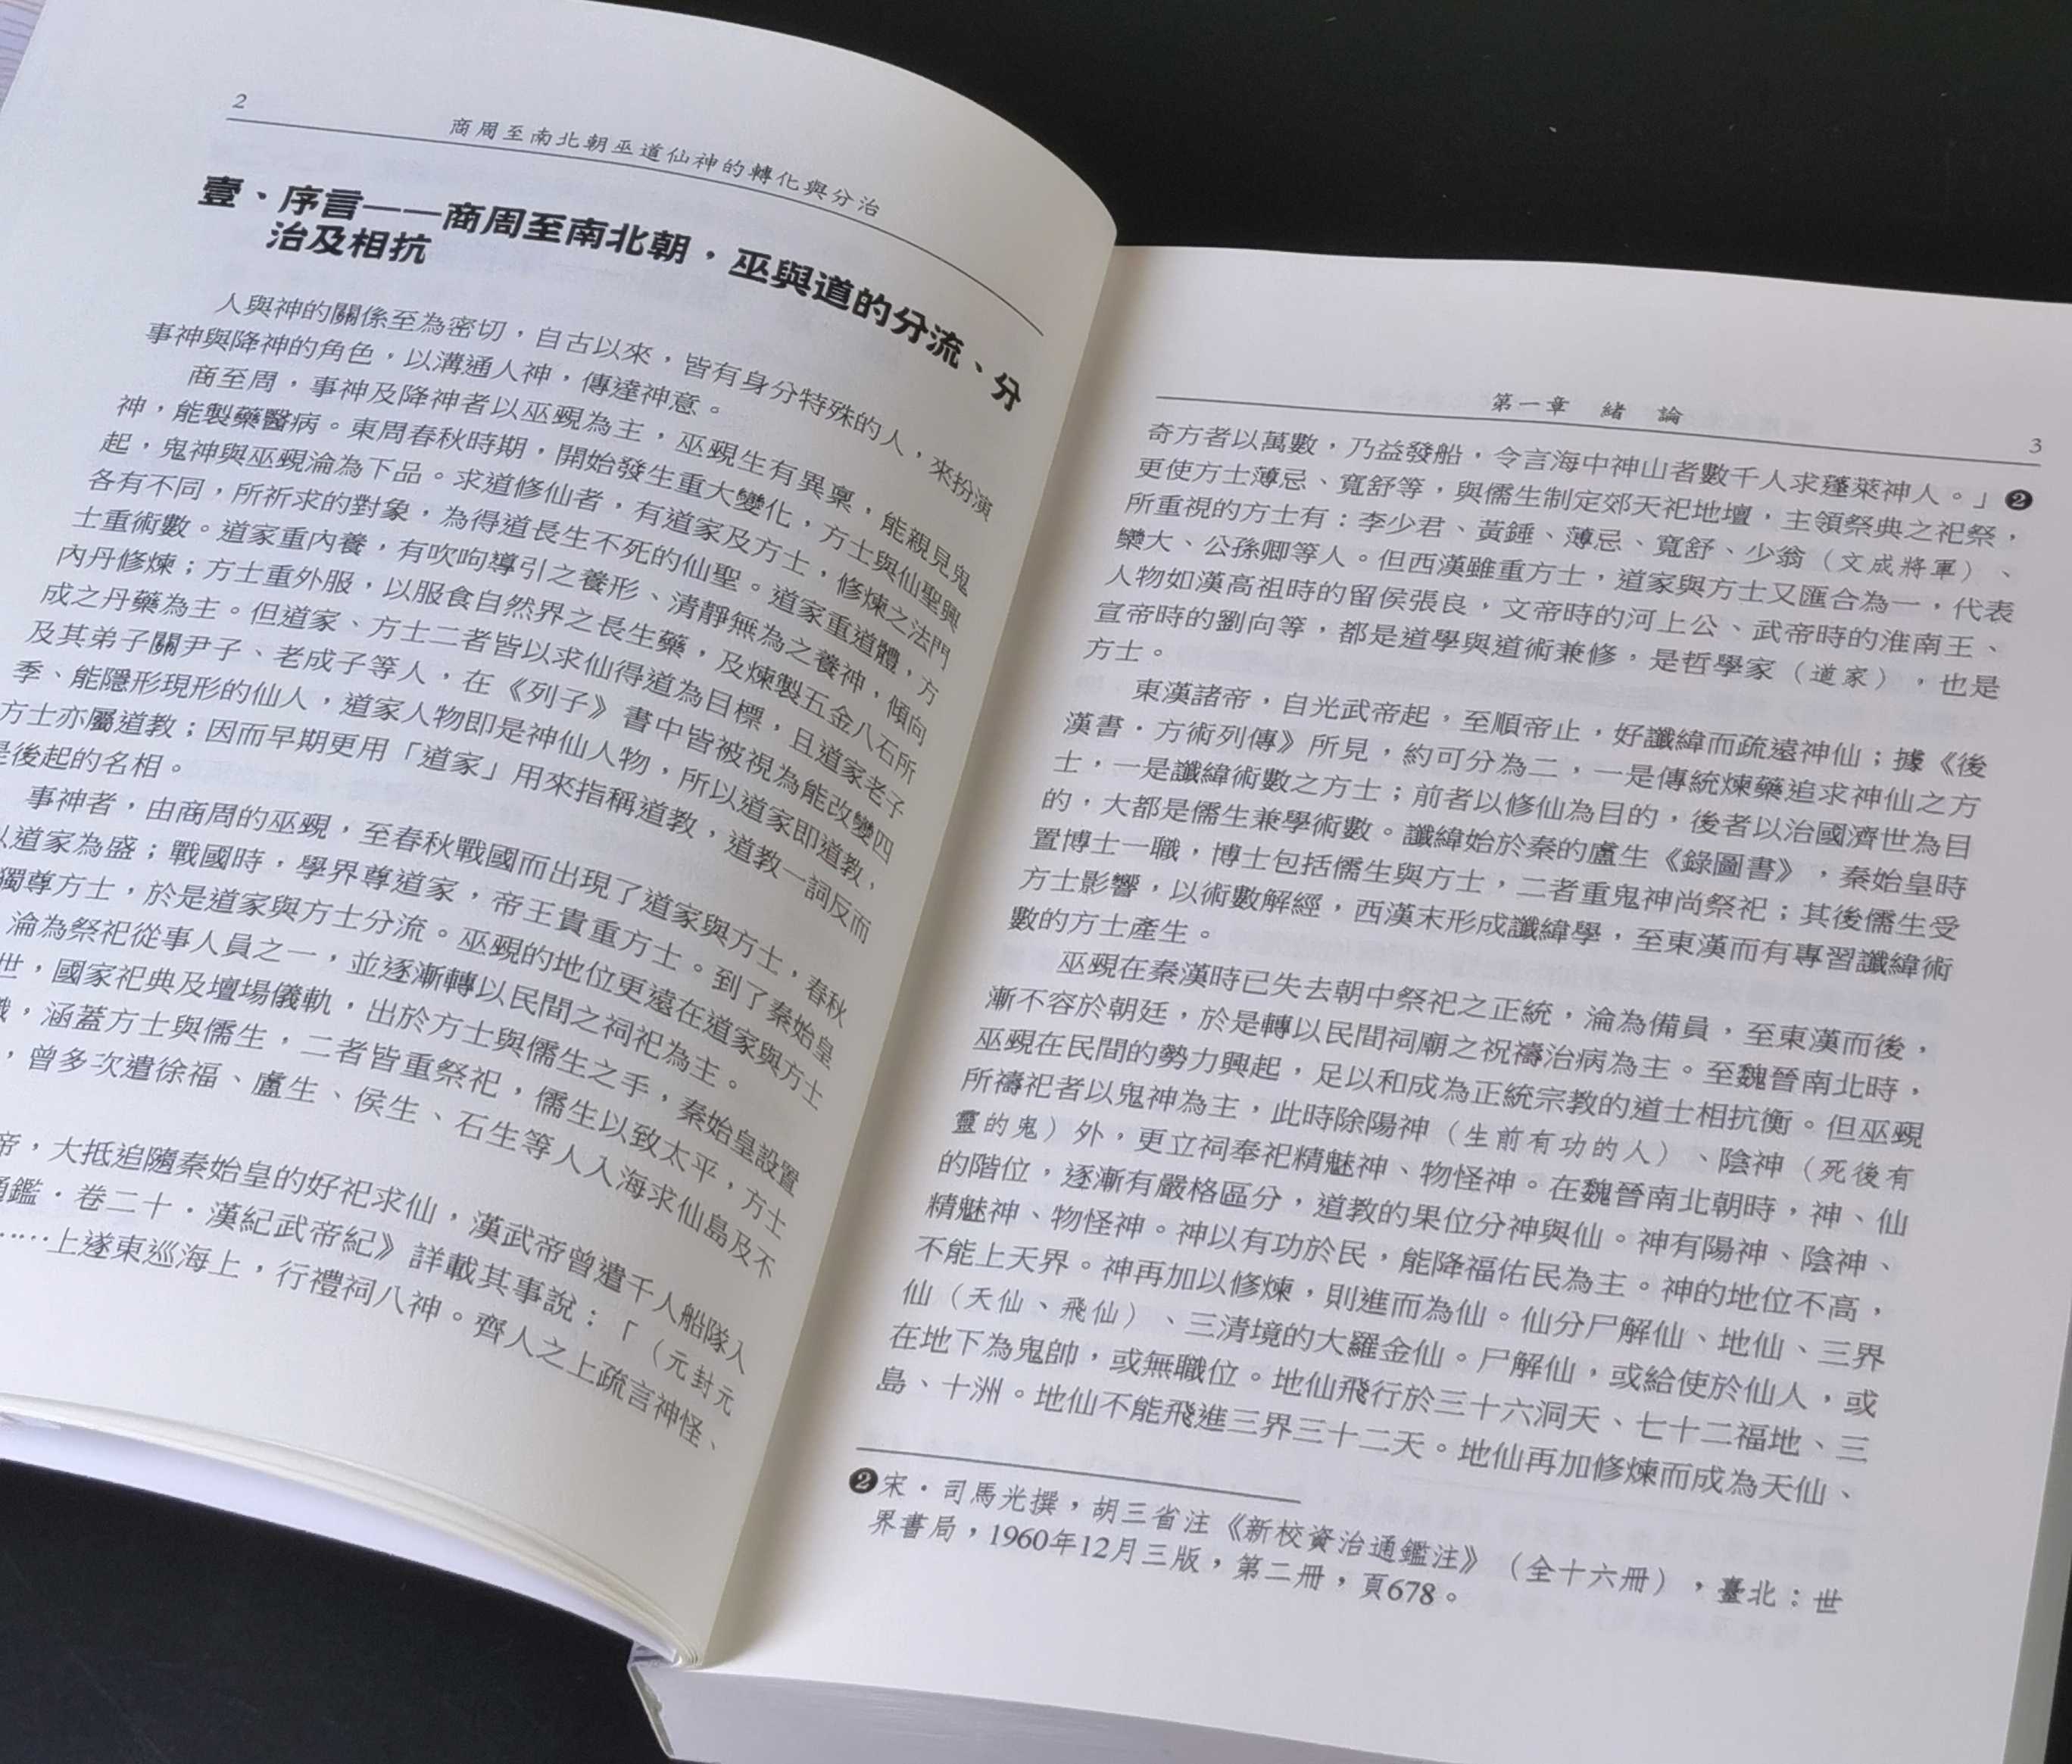 2
商周至南北朝巫道仙神的轉化與分治
壹、序言——商周至南北朝，巫與道的分流、分
治及相抗
人與神的關係至為密切，自古以來，皆有身分特殊的人，來扮演
事神與降神的角色，以溝通人神，傳達神意。
商至周，事神及降神者以巫覡為主，巫覡生有異稟，能親見鬼
神，能製藥醫病。東周春秋時期，開始發生重大變化，方士與仙聖興
起，鬼神與巫覡淪為下品。求道修仙者，有道家及方士，修煉之法門
各有不同，所祈求的對象，為得道長生不死的仙聖。道家重道體，方
士重術數。道家重內養，有吹呴導引之養形、清靜無為之養神，傾向
內丹修煉；方士重外服，以服食自然界之長生藥，及煉製五金八石所
成之丹藥為主。但道家、方士二者皆以求仙得道為目標，且道家老子
及其弟子關尹子、老成子等人，在《列子》書中皆被視為能改變四
季、能隱形現形的仙人，道家人物即是神仙人物，所以道家即道教，
方士亦屬道教；因而早期更用「道家」用來指稱道教，道教一詞反而
是後起的名相。
事神者，由商周的巫覡，至春秋戰國而出現了道家與方士，春秋
以道家為盛；戰國時，學界尊道家，帝王貴重方士。到了秦始皇
獨尊方士，於是道家與方士分流。巫覡的地位更遠在道家與方士
淪為祭祀從事人員之一，並逐漸轉以民間之祠祀為主。
世，國家祀典及壇場儀軌，出於方士與儒生之手，秦始皇設置
職，涵蓋方士與儒生，二者皆重祭祀，儒生以致太平，方士
，曾多次遣徐福、盧生、侯生、石生等人入海求仙島及不
帝，大抵追隨秦始皇的好祀求仙，漢武帝曾遣千人船隊入
通鑑．卷二十．漢紀武帝紀》詳載其事說：「（元封元
……上遂東巡海上，行禮祠八神。齊人之上疏言神怪、
第一章　緒　論
3
奇方者以萬數，乃益發船，令言海中神山者數千人求蓬萊神人。」❷
更使方士薄忌、寬舒等，與儒生制定郊天祀地壇，主領祭典之祀祭，
所重視的方士有：李少君、黃錘、薄忌、寬舒、少翁（文成將軍）、
欒大、公孫卿等人。但西漢雖重方士，道家與方士又匯合為一，代表
人物如漢高祖時的留侯張良，文帝時的河上公、武帝時的淮南王、
宣帝時的劉向等，都是道學與道術兼修，是哲學家（道家），也是
方士。
東漢諸帝，自光武帝起，至順帝止，好讖緯而疏遠神仙；據《後
漢書．方術列傳》所見，約可分為二，一是傳統煉藥追求神仙之方
士，一是讖緯術數之方士；前者以修仙為目的，後者以治國濟世為目
的，大都是儒生兼學術數。讖緯始於秦的盧生《錄圖書》，秦始皇時
置博士一職，博士包括儒生與方士，二者重鬼神尚祭祀；其後儒生受
方士影響，以術數解經，西漢末形成讖緯學，至東漢而有專習讖緯術
數的方士產生。
巫覡在秦漢時已失去朝中祭祀之正統，淪為備員，至東漢而後，
漸不容於朝廷，於是轉以民間祠廟之祝禱治病為主。至魏晉南北時，
巫覡在民間的勢力興起，足以和成為正統宗教的道士相抗衡。但巫覡
所禱祀者以鬼神為主，此時除陽神（生前有功的人）、陰神（死後有
靈的鬼）外，更立祠奉祀精魅神、物怪神。在魏晉南北朝時，神、仙
的階位，逐漸有嚴格區分，道教的果位分神與仙。神有陽神、陰神、
精魅神、物怪神。神以有功於民，能降福佑民為主。神的地位不高，
不能上天界。神再加以修煉，則進而為仙。仙分尸解仙、地仙、三界
仙（天仙、飛仙）、三清境的大羅金仙。尸解仙，或給使於仙人，或
在地下為鬼帥，或無職位。地仙飛行於三十六洞天、七十二福地、三
島、十洲。地仙不能飛進三界三十二天。地仙再加修煉而成為天仙、
❷宋．司馬光撰，胡三省注《新校資治通鑑注》（全十六冊），臺北：世
界書局，1960年12月三版，第二冊，頁678。